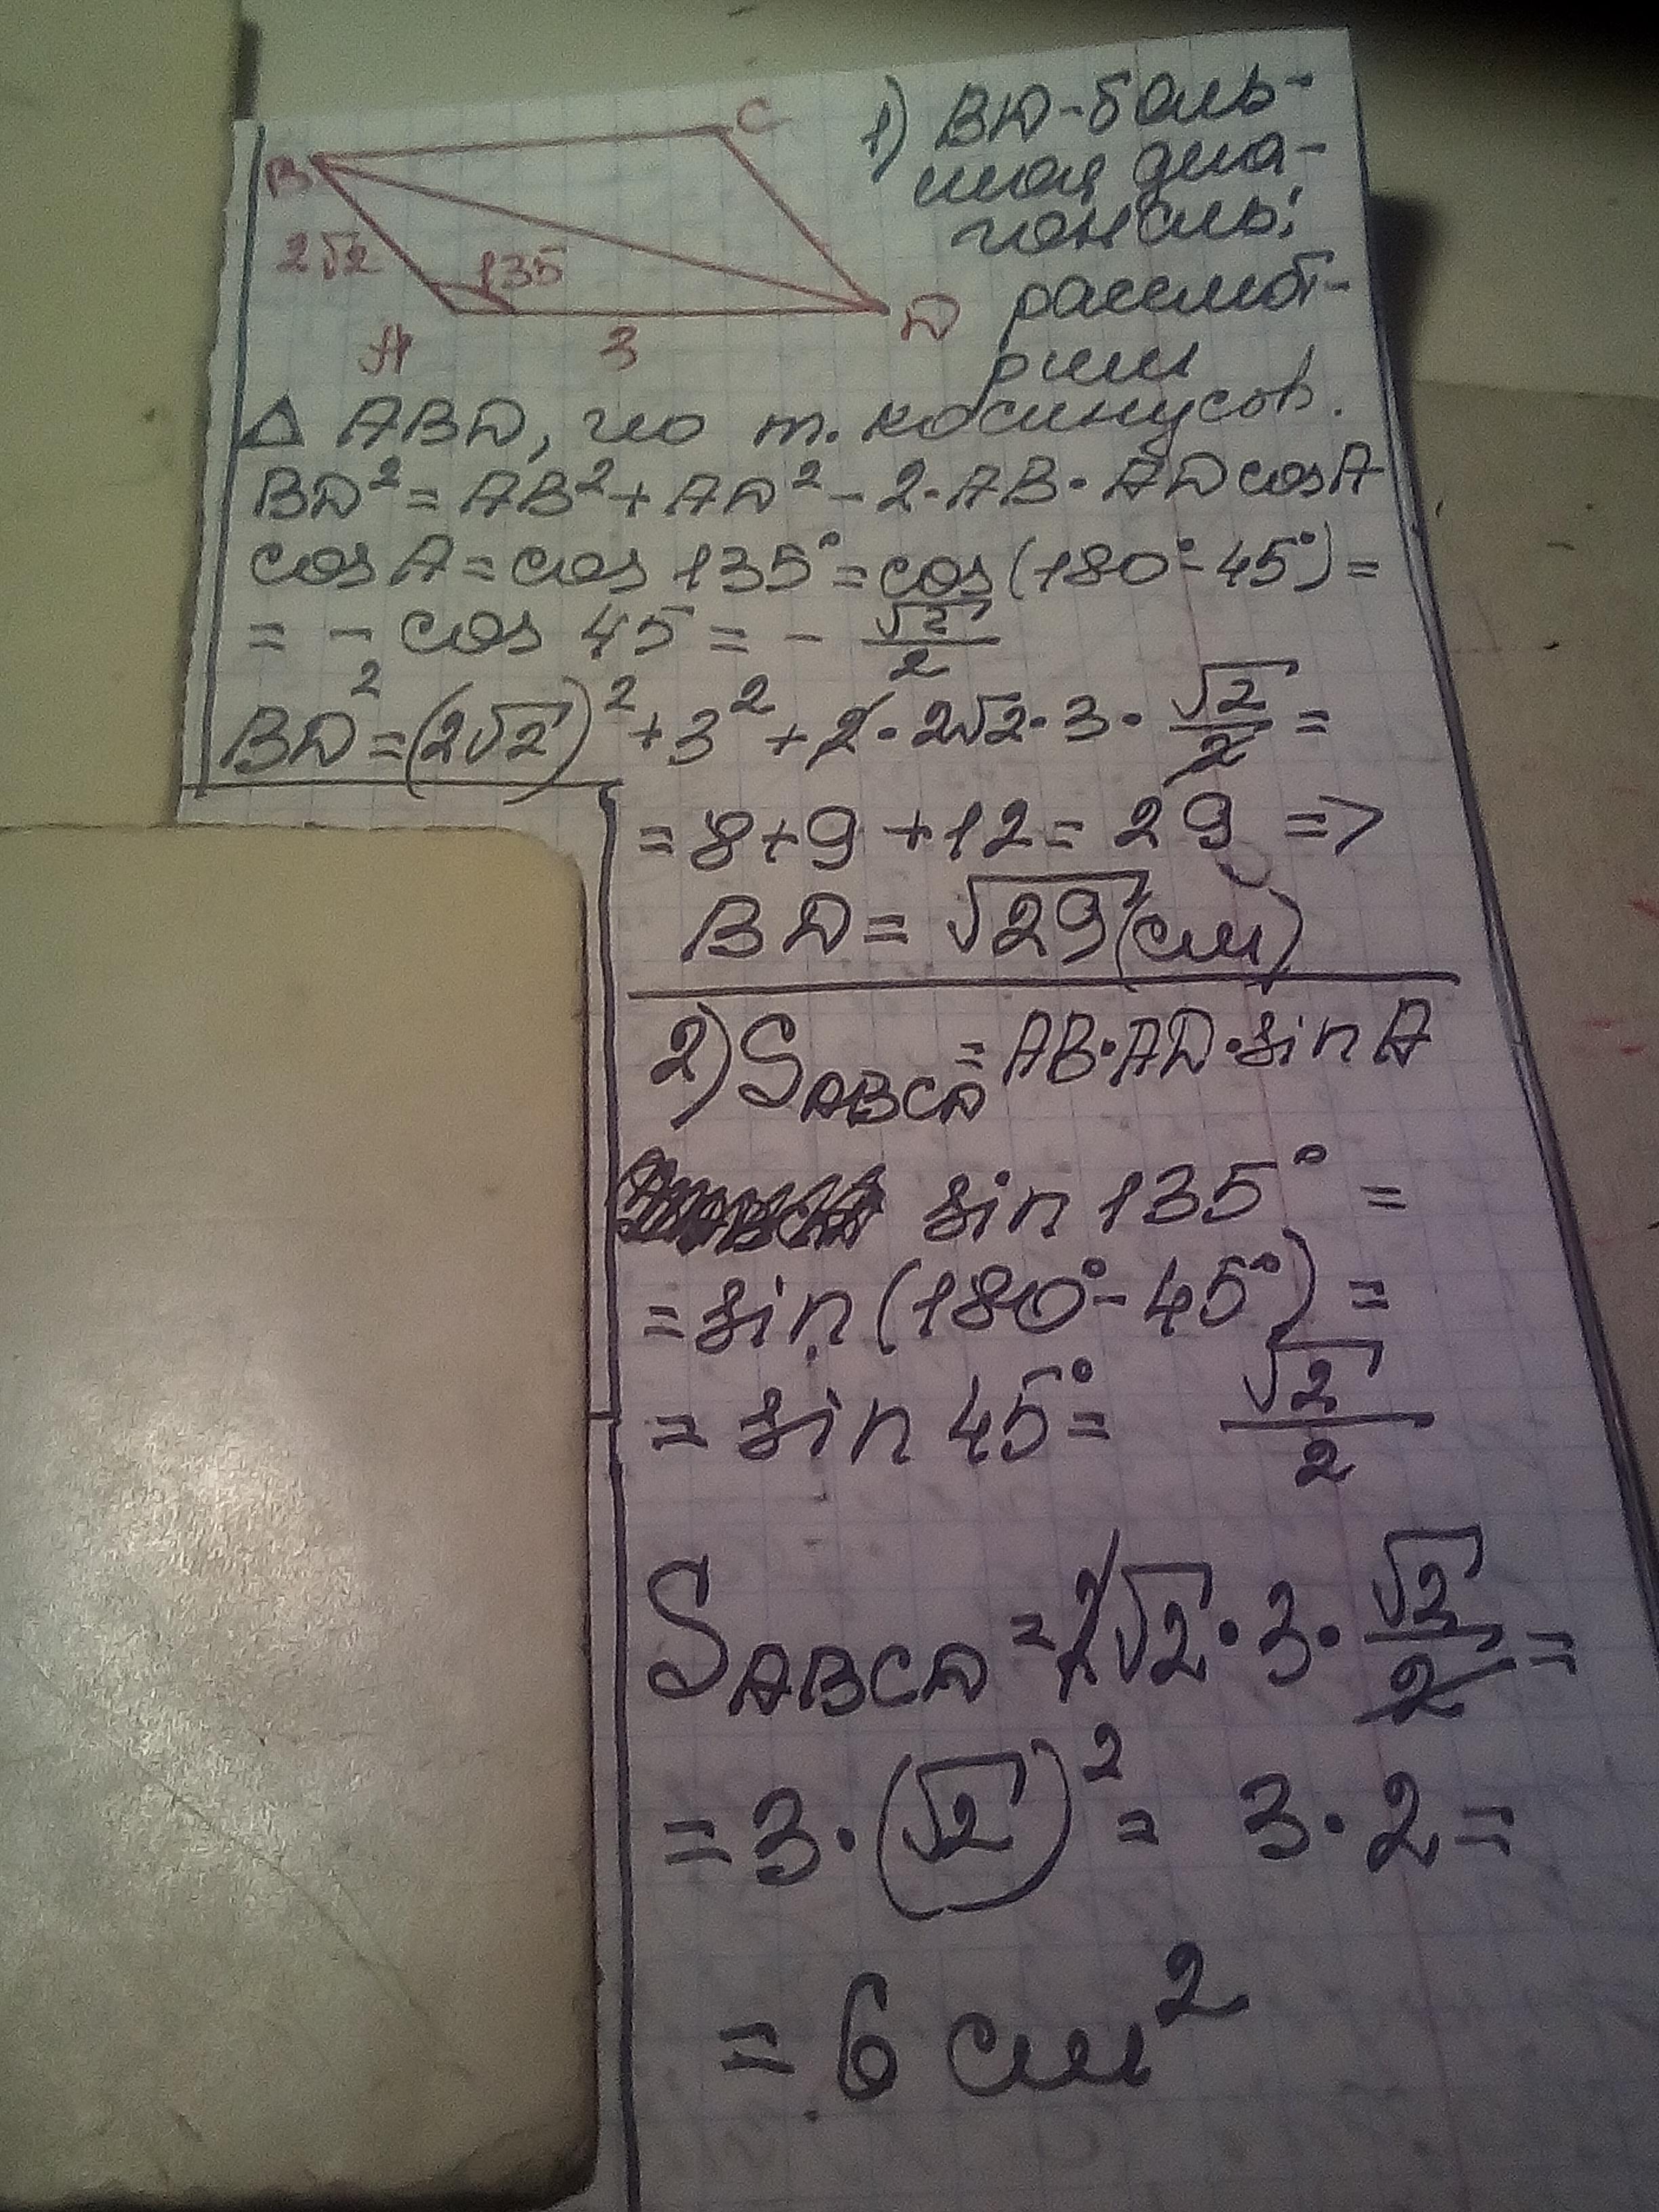 B
C
2√2
135
A
3
D
1) BD - боль-
шая диа-
гональ;
рассмот-
рим
Δ ABD, по т. косинусов.
BD² = AB² + AD² - 2·AB·AD cosA
cos A = cos 135° = cos(180° - 45°) =
= - cos 45 = - √2/2
BD² = (2√2)² + 3² + 2·2√2·3·√2/2 =
= 8 + 9 + 12 = 29 =>
BD = √29 (см)
2) S ABCD = AB·AD·sin A
sin 135° =
= sin(180° - 45°) =
= sin 45° = √2/2
S ABCD = 2√2·3·√2/2 =
= 3·(√2)² = 3·2 =
= 6 см²